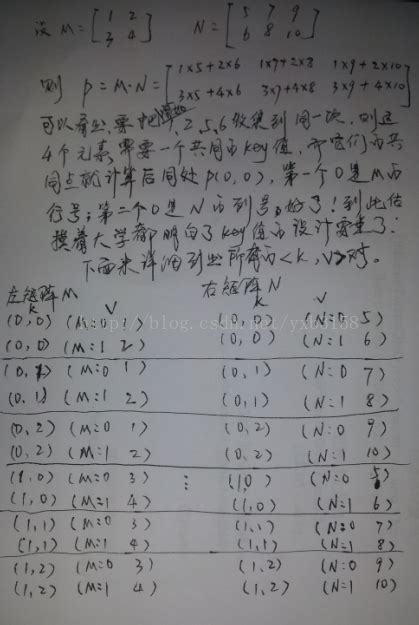 设 M = [1 2 3 4] N = [5 7 9 6 8 10]
则 p = M·N = [1x5+2x6 1x7+2x8 1x9+2x10
3x5+4x6 3x7+4x8 3x9+4x10]
可以看出,要把 1,2,5,6 收集到同一次,则这
4个元素需要一个共同的key值,而它们的共
同点就计算后同处p(0,0),第一个0是M的
行号;第二个0是N的列号,好了!到此估
摸着大学都明白了key值的设计需求了:
下面来详细列出所有的<k,v>对。
左矩阵M 右矩阵N
k v k v
(0,0) (M:0 1) (0,0) (N:0 5)
(0,0) (M:1 2) (0,0) (N:1 6)
http://blog.csdn.net/yxb3158
(0,1) (M:0 1) (0,1) (N:0 7)
(0,1) (M:1 2) (0,1) (N:1 8)
(0,2) (M:0 1) (0,2) (N:0 9)
(0,2) (M:1 2) (0,2) (N:1 10)
(1,0) (M:0 3) (1,0) (N:0 5)
(1,0) (M:1 4) (1,0) (N:1 6)
(1,1) (M:0 3) (1,1) (N:0 7)
(1,1) (M:1 4) (1,1) (N:1 8)
(1,2) (M:0 3) (1,2) (N:0 9)
(1,2) (M:1 4) (1,2) (N:1 10)